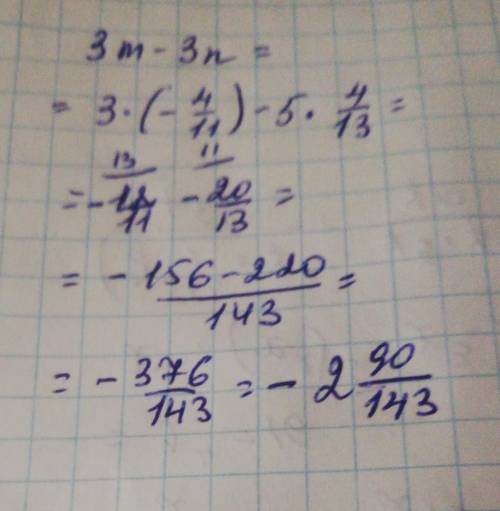 3m - 3n =
= 3 · (- 4/11) - 5 · 4/13 =
= - 12/11 (13) - 20/13 (11) =
= (- 156 - 220)/143 =
= - 376/143 = - 2 90/143